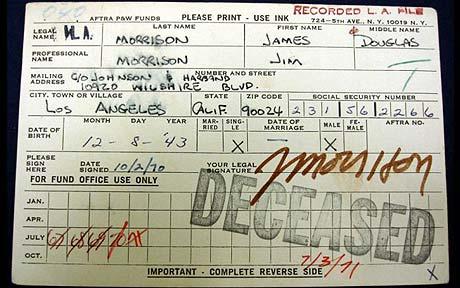 AFTRA P&W FUNDS PLEASE PRINT - USE INK RECORDED L. A. FILE
724-5th AVE., N.Y. 10019 N.Y.
LEGAL NAME LAST NAME FIRST NAME MIDDLE NAME
MORRISON JAMES DOUGLAS
PROFESSIONAL NAME MORRISON JIM
MAILING ADDRESS NUMBER AND STREET
C/O JOHNSON & HARBAND
10920 WILSHIRE BLVD.
CITY, TOWN OR VILLAGE STATE ZIP CODE SOCIAL SECURITY NUMBER
LOS ANGELES CALIF. 90024 231 56 2266
DATE OF BIRTH MONTH DAY YEAR MARRIED SINGLE DATE OF MARRIAGE MALE FEMALE AFTRA NO.
12 - 8 - '43 X — X
PLEASE SIGN HERE DATE SIGNED 10/2/70 YOUR LEGAL SIGNATURE JMorrison
FOR FUND OFFICE USE ONLY
JAN.
APR.
JULY 67 68 69 70 71
OCT.
DECEASED
7/3/71
IMPORTANT - COMPLETE REVERSE SIDE X